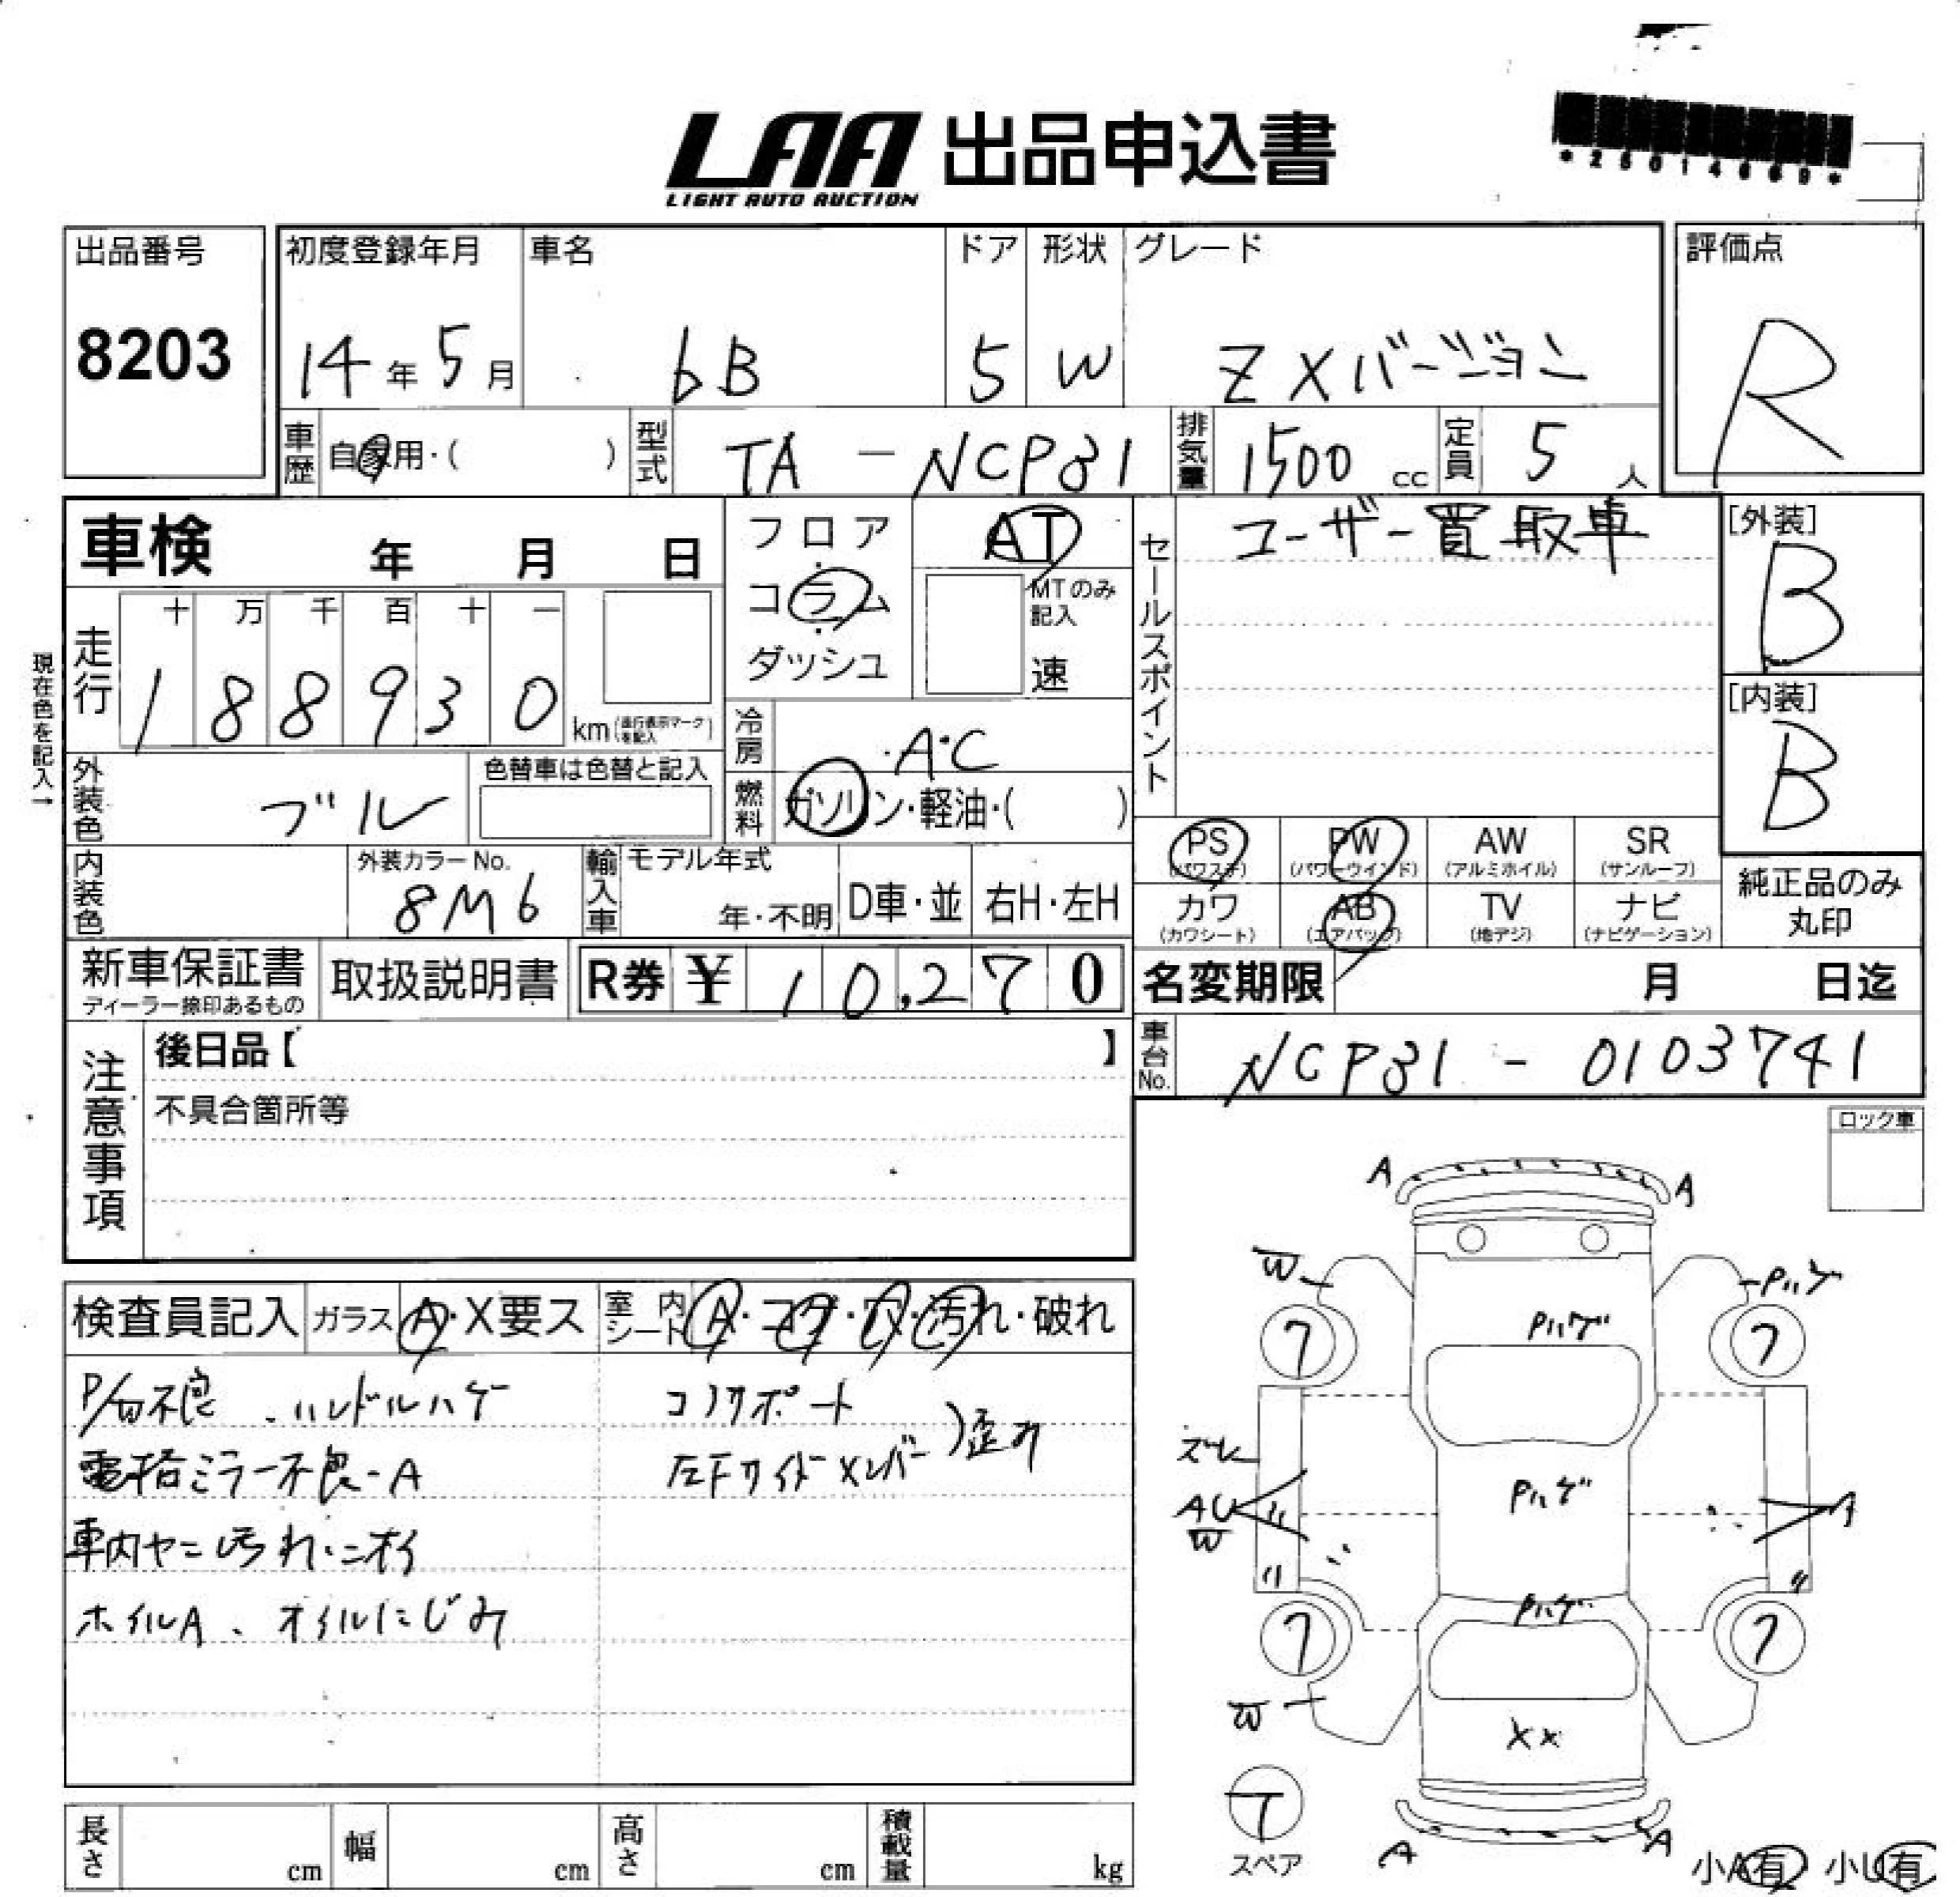 LAA 出品申込書
LIGHT AUTO AUCTION
*25014669*
出品番号
8203
初度登録年月
14年5月
車名
bB
ドア
5
形状
W
グレード
Z Xバージョン
評価点
R
車歴 自家用・( )
型式 TA-NCP31
排気量 1500 cc
定員 5 人
車検 年 月 日
フロア・コラム・ダッシュ
AT
MTのみ記入
速
現在色を記入→
走行
十 万 千 百 十 一
1 8 8 9 3 0 km (走行表示マークを記入)
冷房 A・C
燃料 ガソリン・軽油・( )
セールスポイント
ユーザー買取車
[外装]
B
[内装]
B
外装色 ブル
色替車は色替と記入
内装色
外装カラーNo.
8M6
輸入車
モデル年式
年・不明
D車・並
右H・左H
PS (パワステ)
PW (パワーウインド)
AW (アルミホイル)
SR (サンルーフ)
カワ (カワシート)
AB (エアバッグ)
TV (地デジ)
ナビ (ナビゲーション)
純正品のみ
丸印
新車保証書
ディーラー捺印あるもの
取扱説明書
R券 ¥ 10,270
名変期限 月 日迄
車台No. NCP31-0103741
注意事項
後日品【 】
不具合箇所等
ロック車
検査員記入
ガラス A・X要ス
室内シート A・コゲ・穴・汚れ・破れ
P/句不良 、ハンドルハゲ
電格ミラー不良-A
車内ヤニ汚れ・ニオイ
ホイルA、オイルにじみ
コアサポート
左Fサイドメンバー
)歪み
A
A
W
Pハゲ
7
Pハゲ
7
ズレ
AU
W
〃
Pハゲ
A
〃
〃
7
Pハゲ
7
W
XX
7
スペア
A
A
小A有 小U有
長さ cm
幅 cm
高さ cm
積載量 kg